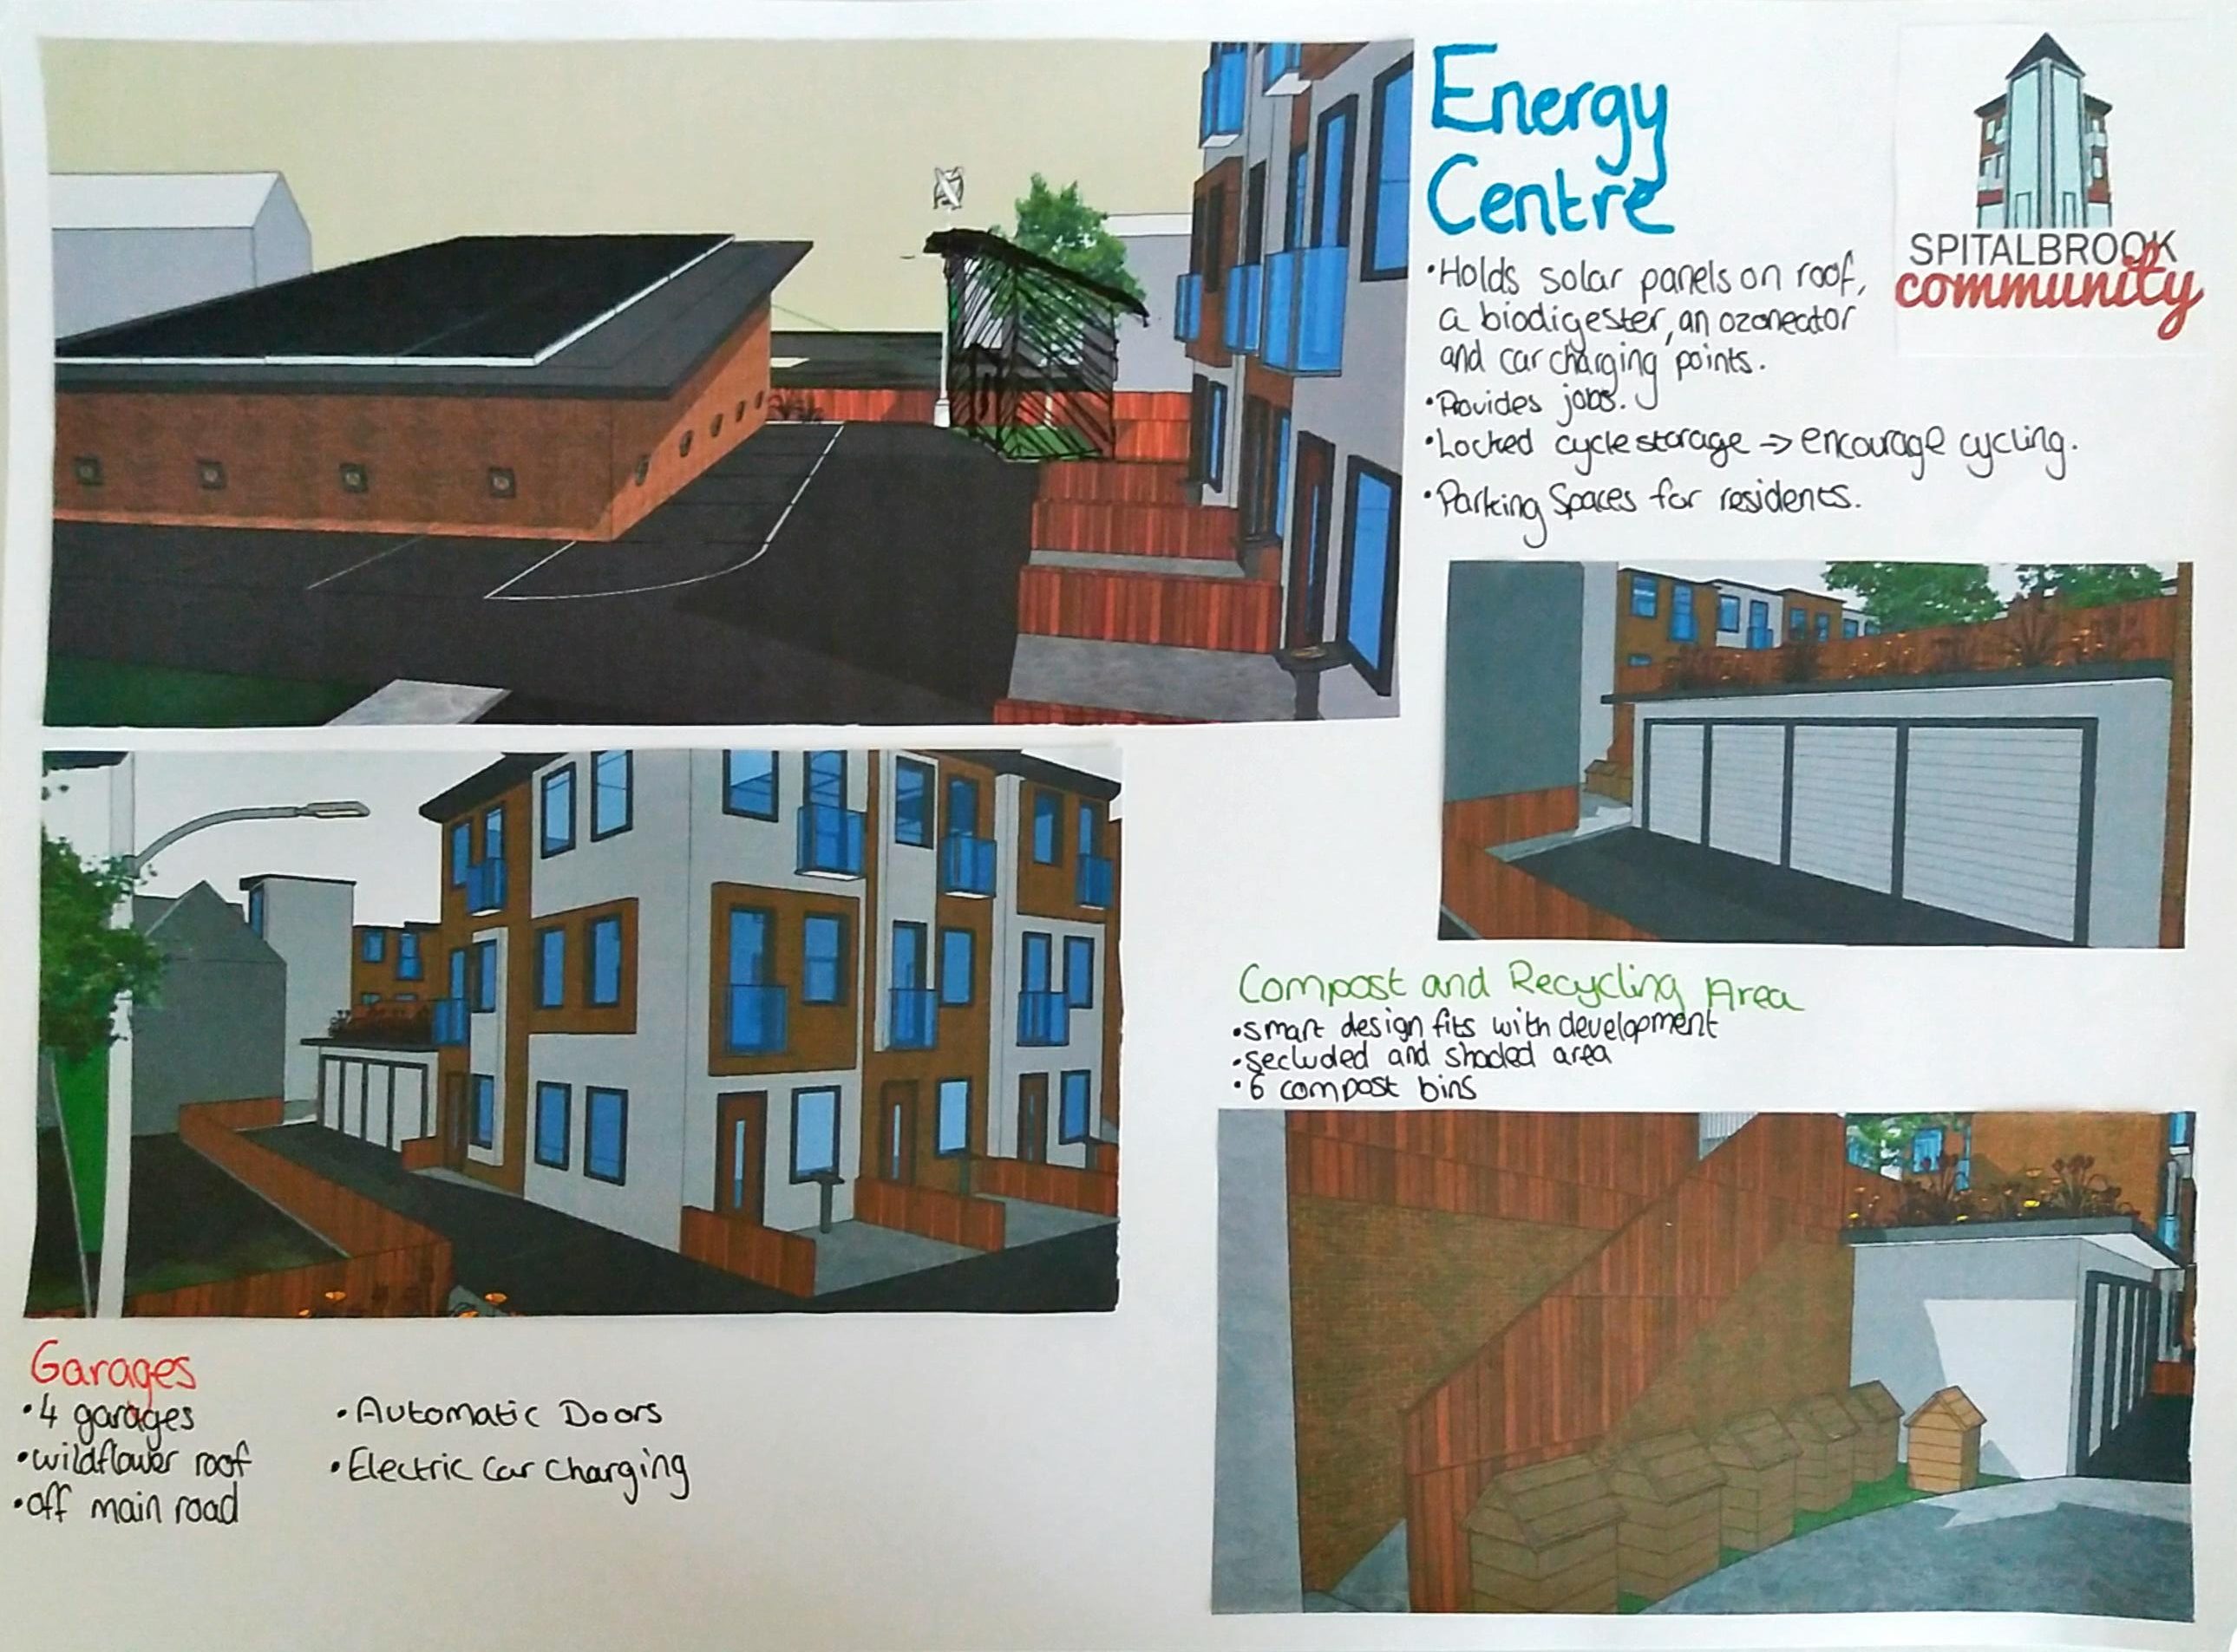 Energy
Centre
SPITALBROOK
community
•Holds solar panels on roof,
a biodigester, an ozoneator
and car charging points.
•Provides jobs.
•Locked cycle storage ⇒ encourage cycling.
•Parking Spaces for residents.
Compost and Recycling Area
•smart design fits with development
•secluded and shaded area
•6 compost bins
Garages
•4 garages
•wildflower roof
•off main road
•Automatic Doors
•Electric Car Charging